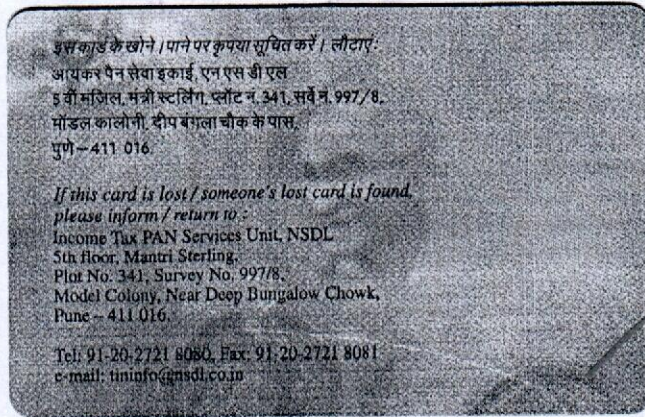 इस कार्ड के खोने / पाने पर कृपया सूचित करें । लौटाएं:
आयकर पेन सेवा इकाई, एन एस डी एल
5 वीं मंजिल, मंत्री स्टर्लिंग, प्लॉट नं. 341, सर्वे नं. 997/8,
मॉडल कालोनी, दीप बंगला चौक के पास,
पुणे – 411 016.
If this card is lost / someone's lost card is found,
please inform / return to :
Income Tax PAN Services Unit, NSDL
5th floor, Mantri Sterling,
Plot No. 341, Survey No. 997/8,
Model Colony, Near Deep Bungalow Chowk,
Pune – 411 016.
Tel: 91-20-2721 8080, Fax: 91-20-2721 8081
e-mail: tininfo@nsdl.co.in